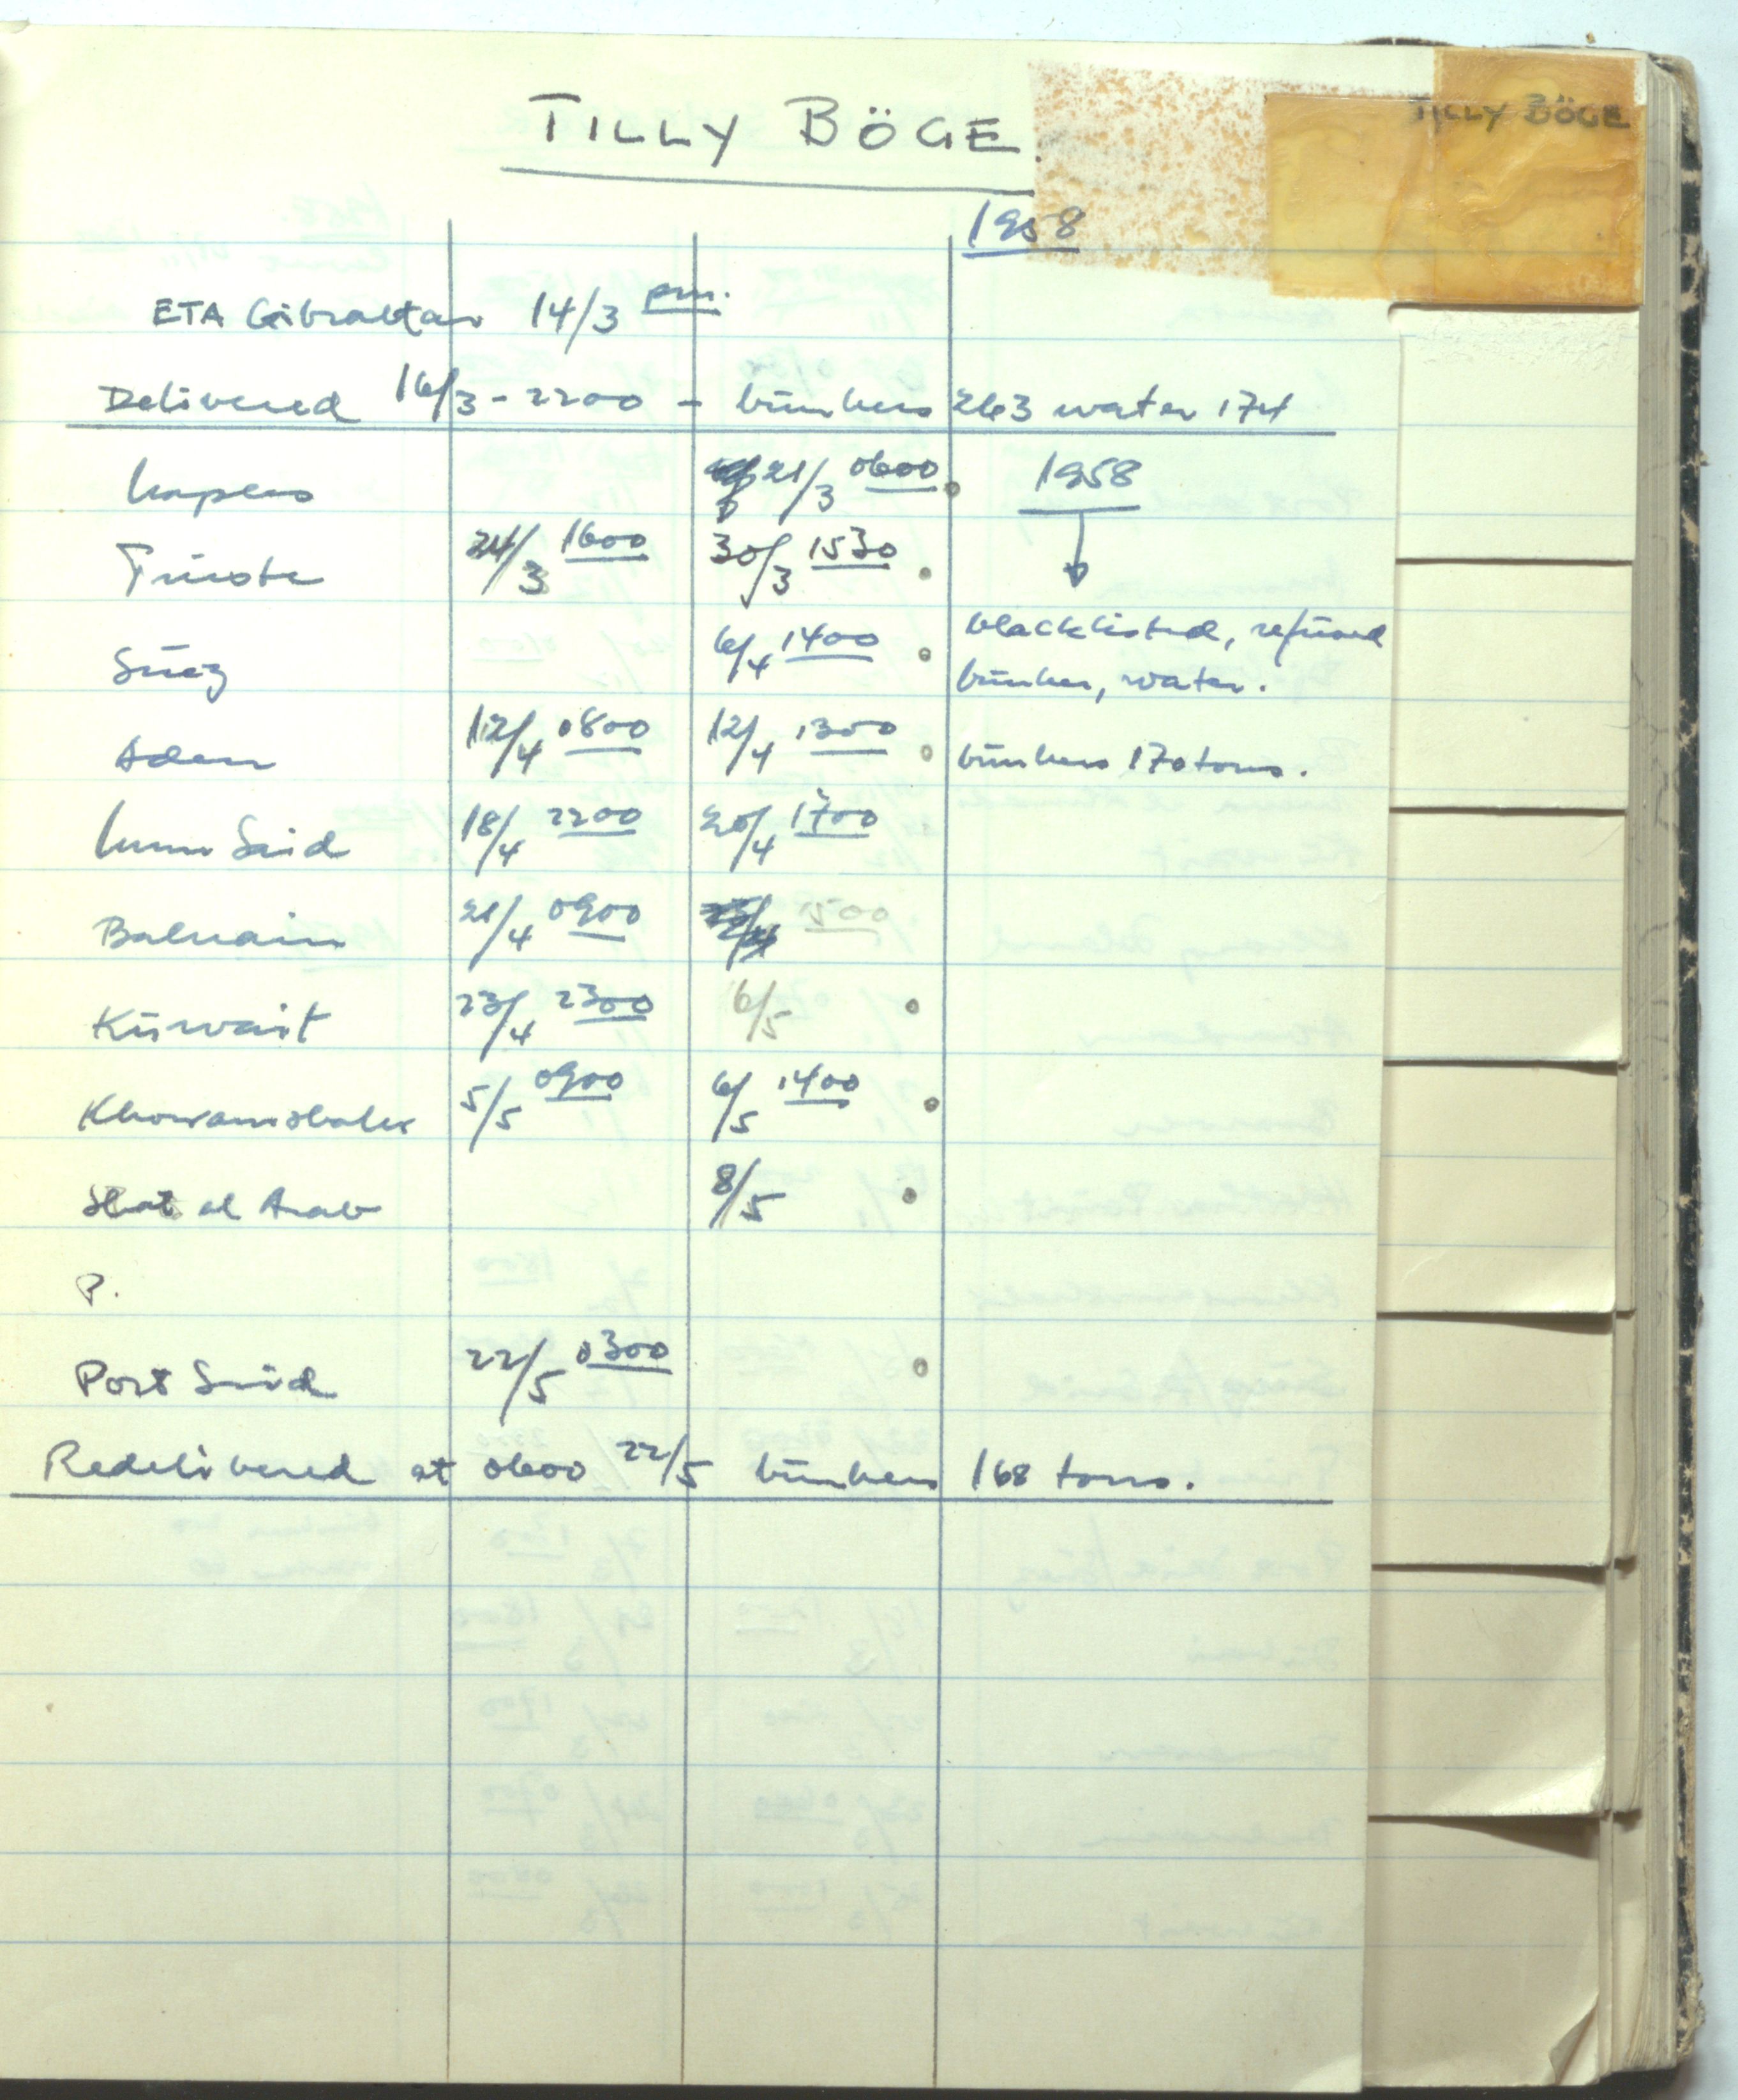 TILLY BÖGE
TILLY BÖGE
1958
ETA Gibraltar 14/3 pm.
Delivered 16/3 - 2200 - bunkers 263 water 174
21/3 0600 1958
Trieste 24/3 1600 30/3 1530
Suez 6/4 1400 blacklisted, refused
bunker, water.
Aden 12/4 0800 12/4 1300 bunkers 170 tons.
Umm Said 18/4 2200 20/4 1700
Bahrain 21/4 0900 1500
Kuwait 23/4 2300 6/5
Khorramshahr 5/5 0900 6/5 1400
Shat al Arab 8/5
P.
Port Said 22/5 0300
Redelivered at 0600 22/5 bunkers 168 tons.